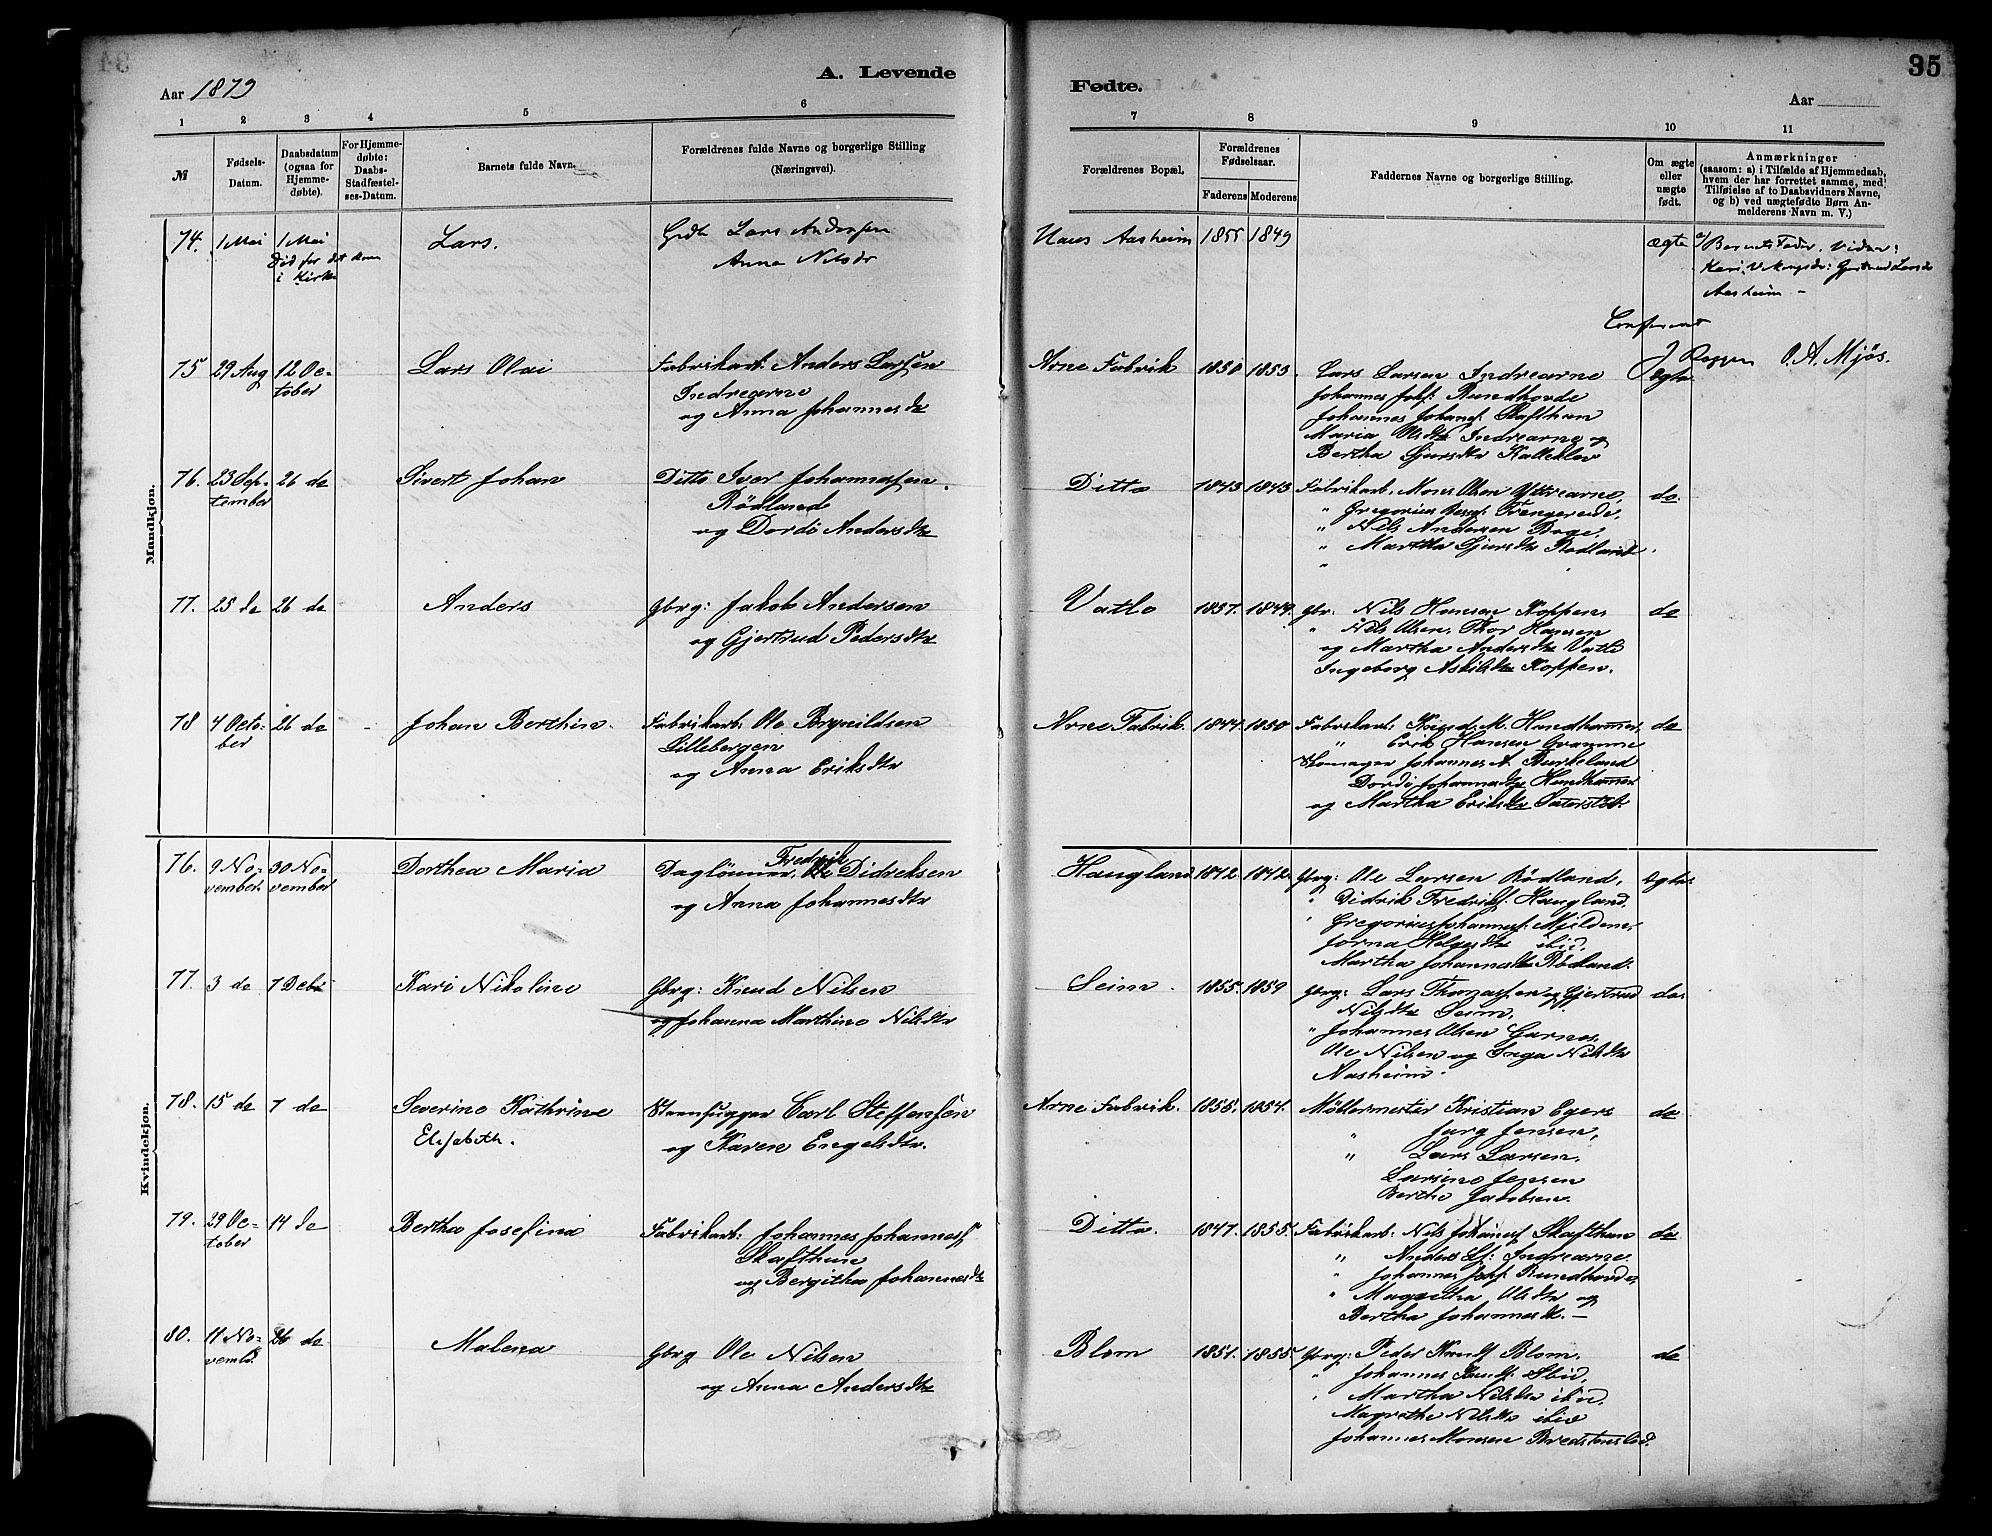 Aar 1879
A. Levende
Fødte.
Aar
35
1 2 3 4 5 6 7 8 9 10 11
№
Fødsels-
Datum.
Daabsdatum
(ogsaa for
Hjemme-
døbte).
For Hjemme-
døbte:
Daabs-
Stadfæstel-
ses-Datum.
Barnets fulde Navn.
Forældrenes fulde Navne og borgerlige Stilling
(Næringsvei).
Forældrenes Bopæl.
Forældrenes
Fødselsaar.
Faderens Moderens
Faddernes Navne og borgerlige Stilling.
Om ægte
eller
uægte
født.
Anmærkninger
(saasom: a) i Tilfælde af Hjemmedaab,
hvem der har forrettet samme, med
Tilføielse af to Daabsvidners Navne,
og b) ved uægtefødte Børn An-
melderens Navn m. V.)
Mandkjøn.
74. 1 Mai 1 Mai
død før det kom
i Kirke
Lars.
Lars Andersen
Anna Nilsdr
Haus Aasheim 1855 1849
ægte
a/ Barnets Fader. Vidner:
Kari Vikingsdr: Gjertrud Larsdr
Aasheim –
Confereret
J Koppen O. A. Mjøs.
75 29 Aug 12 Oc-
tober
Lars Olai
Fabrikarb: Anders Larsen
Indrearne
og Anna Johannesdtr
Arne Fabrik 1850 1853.
Lars Larsen Indrearne
Johannes Johs: Rundhovde
Johannes Johans: Skafthun
Maria Olsdtr Indrearne og
Bertha Gjursdtr Kalleklev
ægte
76. 23 Sep-
tember
26 do
Sivert Johan
Ditto Iver Johannessen
Rødland
og Dordi Andersdtr
Ditto 1843 1843
Fabrikarb. Mons Olsen Yttrearne,
" Gregorius Trengereid,
" Nils Andersen Boge,
" Martha Gjursdtr Rødland.
"
do
77. 25 do 26 do
Anders
Gbrg: Jakob Andersen
og Gjertrud Pedersdtr
Vatle 1837. 1844.
Gbr. Nils Hansen Koppen,
" Nils Olsen, Thor Hansen
og Martha Andersdtr Vatle
Ingeborg Askildtr Koppen.
do
78 4 Octo-
ber
26 do -
Johan Berthin.
Fabrikarb: Ole Brynildsen
Lillebergen
og Anna Eriksdtr
Arne Fabrik. 1844. 1850
Fabrikarb: Knud M. Hundhammer,
" Erik Hansen Gramme
Skomager Johannes A. Birkeland
Dordi Johannesdtr Hundhammer
og Martha Eriksdtr Sæterstøl.
do
Kvindekjøn.
76. 9 No-
vember.
30 No-
vember
Dorthea Maria
Daglønner, Fredrik Didriksen
og Anna Johannesdtr
Haugland 1842 1842.
Gbrg: Ole Larsen Rødland,
" Didrik Fredriks: Haugland,
" Gregorius Johannes: Mjeldene,
Jorna Helgesdtr ibid,
Martha Johannesdtr Rødland.
Egte
77. 3 do 7 Decb
Kari Nikoline
Gbrg: Knud Nilsen
og Johanna Marthine Nilsdtr
Seim. 1855. 1859
Gbrg: Lars Thomassen og Gjertrud
Nilsdtr Seim,
" Johannes Olsen Garnes,
Ole Nilsen og Inga Nilsdtr
Aasheim.
do.
78. 15 do 7 do
Severine Kathrine
Elisabeth.
Stenhugger Carl Steffensen
og Karen Engelsdtr.
Arne Fabrik. 1855. 1854.
Møllermester Kristian Egers
" Jørg Jensen,
" Lars Larsen.
Larsine Jensen
Berthe Jakobsen.
do
79. 29 Oc-
tober
14 do
Bertha Josefina
Fabrikarb: Johannes Johanness
Skafthun
og Bergitha Johannesdtr
Ditto. 1847. 1855.
Fabrikarb: Nils Johans: Skafthun
" Anders Ls: Indrearne
" Johannes Johs: Rundhovde
" Magretha Olsdtr og
Bertha Johannesdtr. –
do
80. 11 No-
vemb.
26 do
Malena
Gbrg Ole Nilsen
og Anna Andersdtr
Blom 1851. 1855.
Gbrg: Peder Knuds: Blom,
" Johannes Knuds: Ibid,
" Martha Nilsdtr ibid,
Magrethe Nilsdtr ibid
Johannes Monsen Bredstenslid.
do